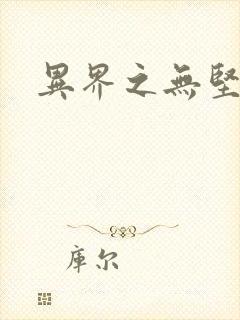 異界之無堅
库尔